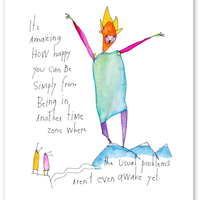 It's
amazing
HOW happy
you can Be
Simply from
Being in
another time
zone where
the usual problems
aren't even awake yet.